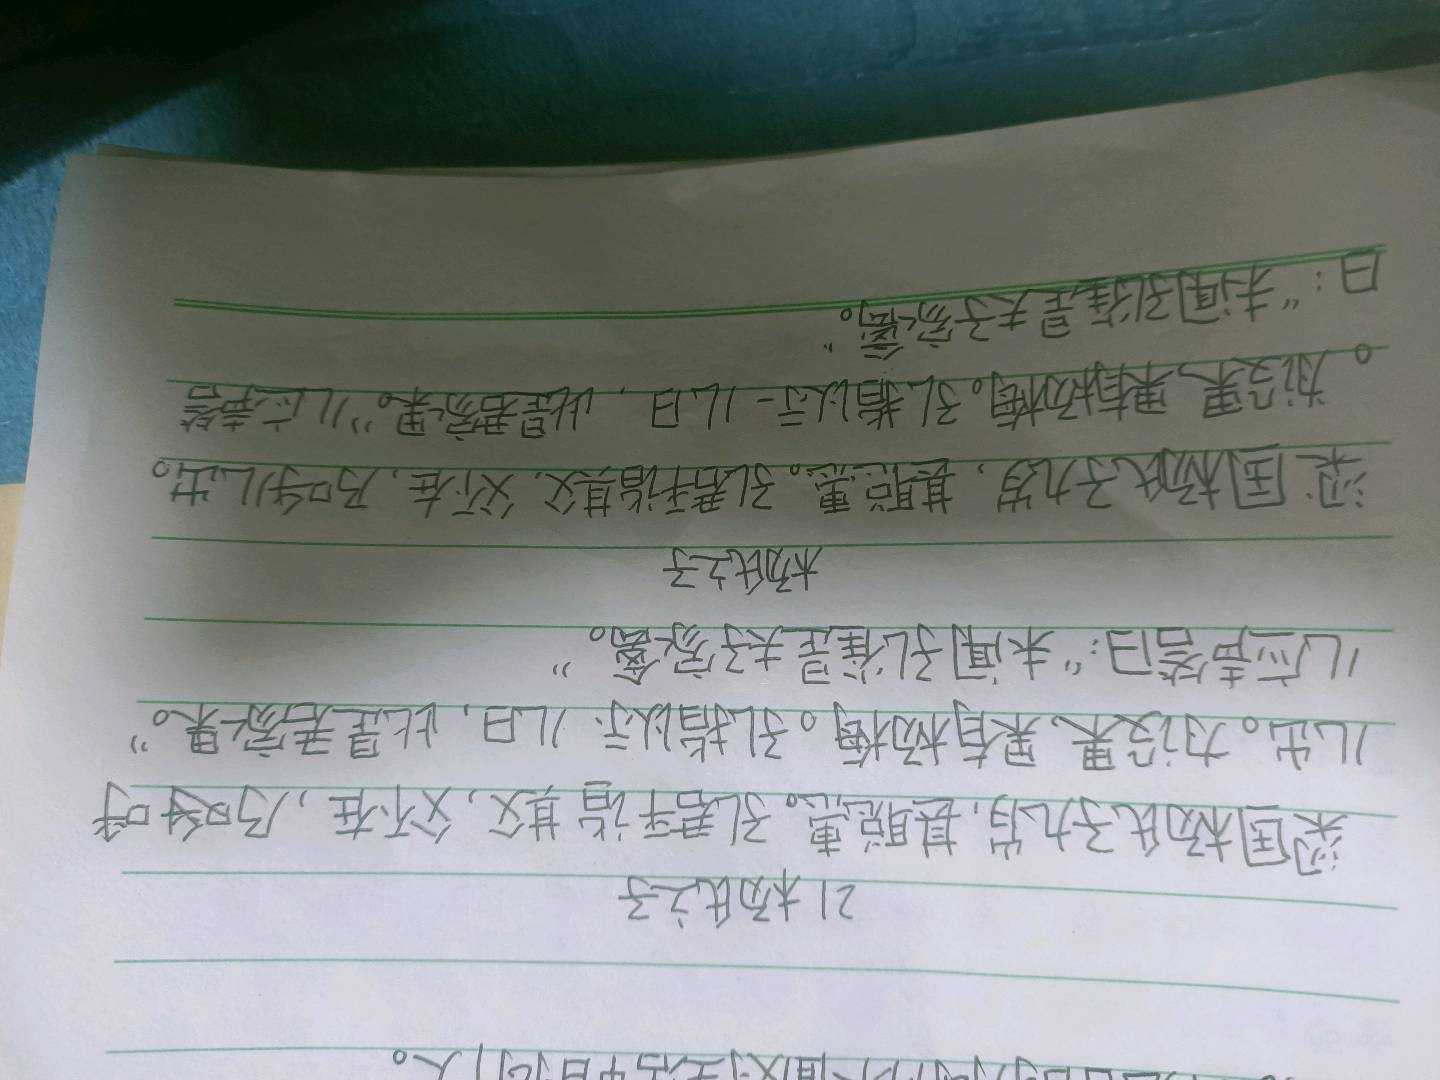 21 杨氏之子
梁国杨氏子九岁,甚聪惠。孔君平诣其父,父不在,乃呼
儿出。为设果,果有杨梅。孔指以示儿曰,此是君家果。”
儿应声答曰:“未闻孔雀是夫子家禽。”
杨氏之子
梁国杨氏子九岁,甚聪惠。孔君平诣其父,父不在,乃呼儿出。
为设果,果有杨梅。孔指以示一儿曰,此是君家果。”儿应声答
曰:“未闻孔雀是夫子家禽。”